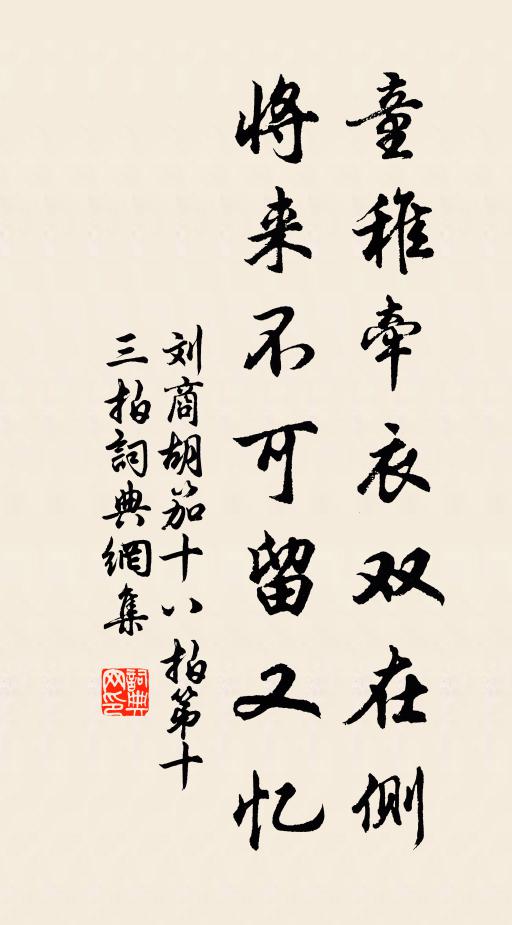 童稚牵衣双在侧
将来不可留又忆
刘商胡笳十八拍第十
三拍詞典網集
詞典网印